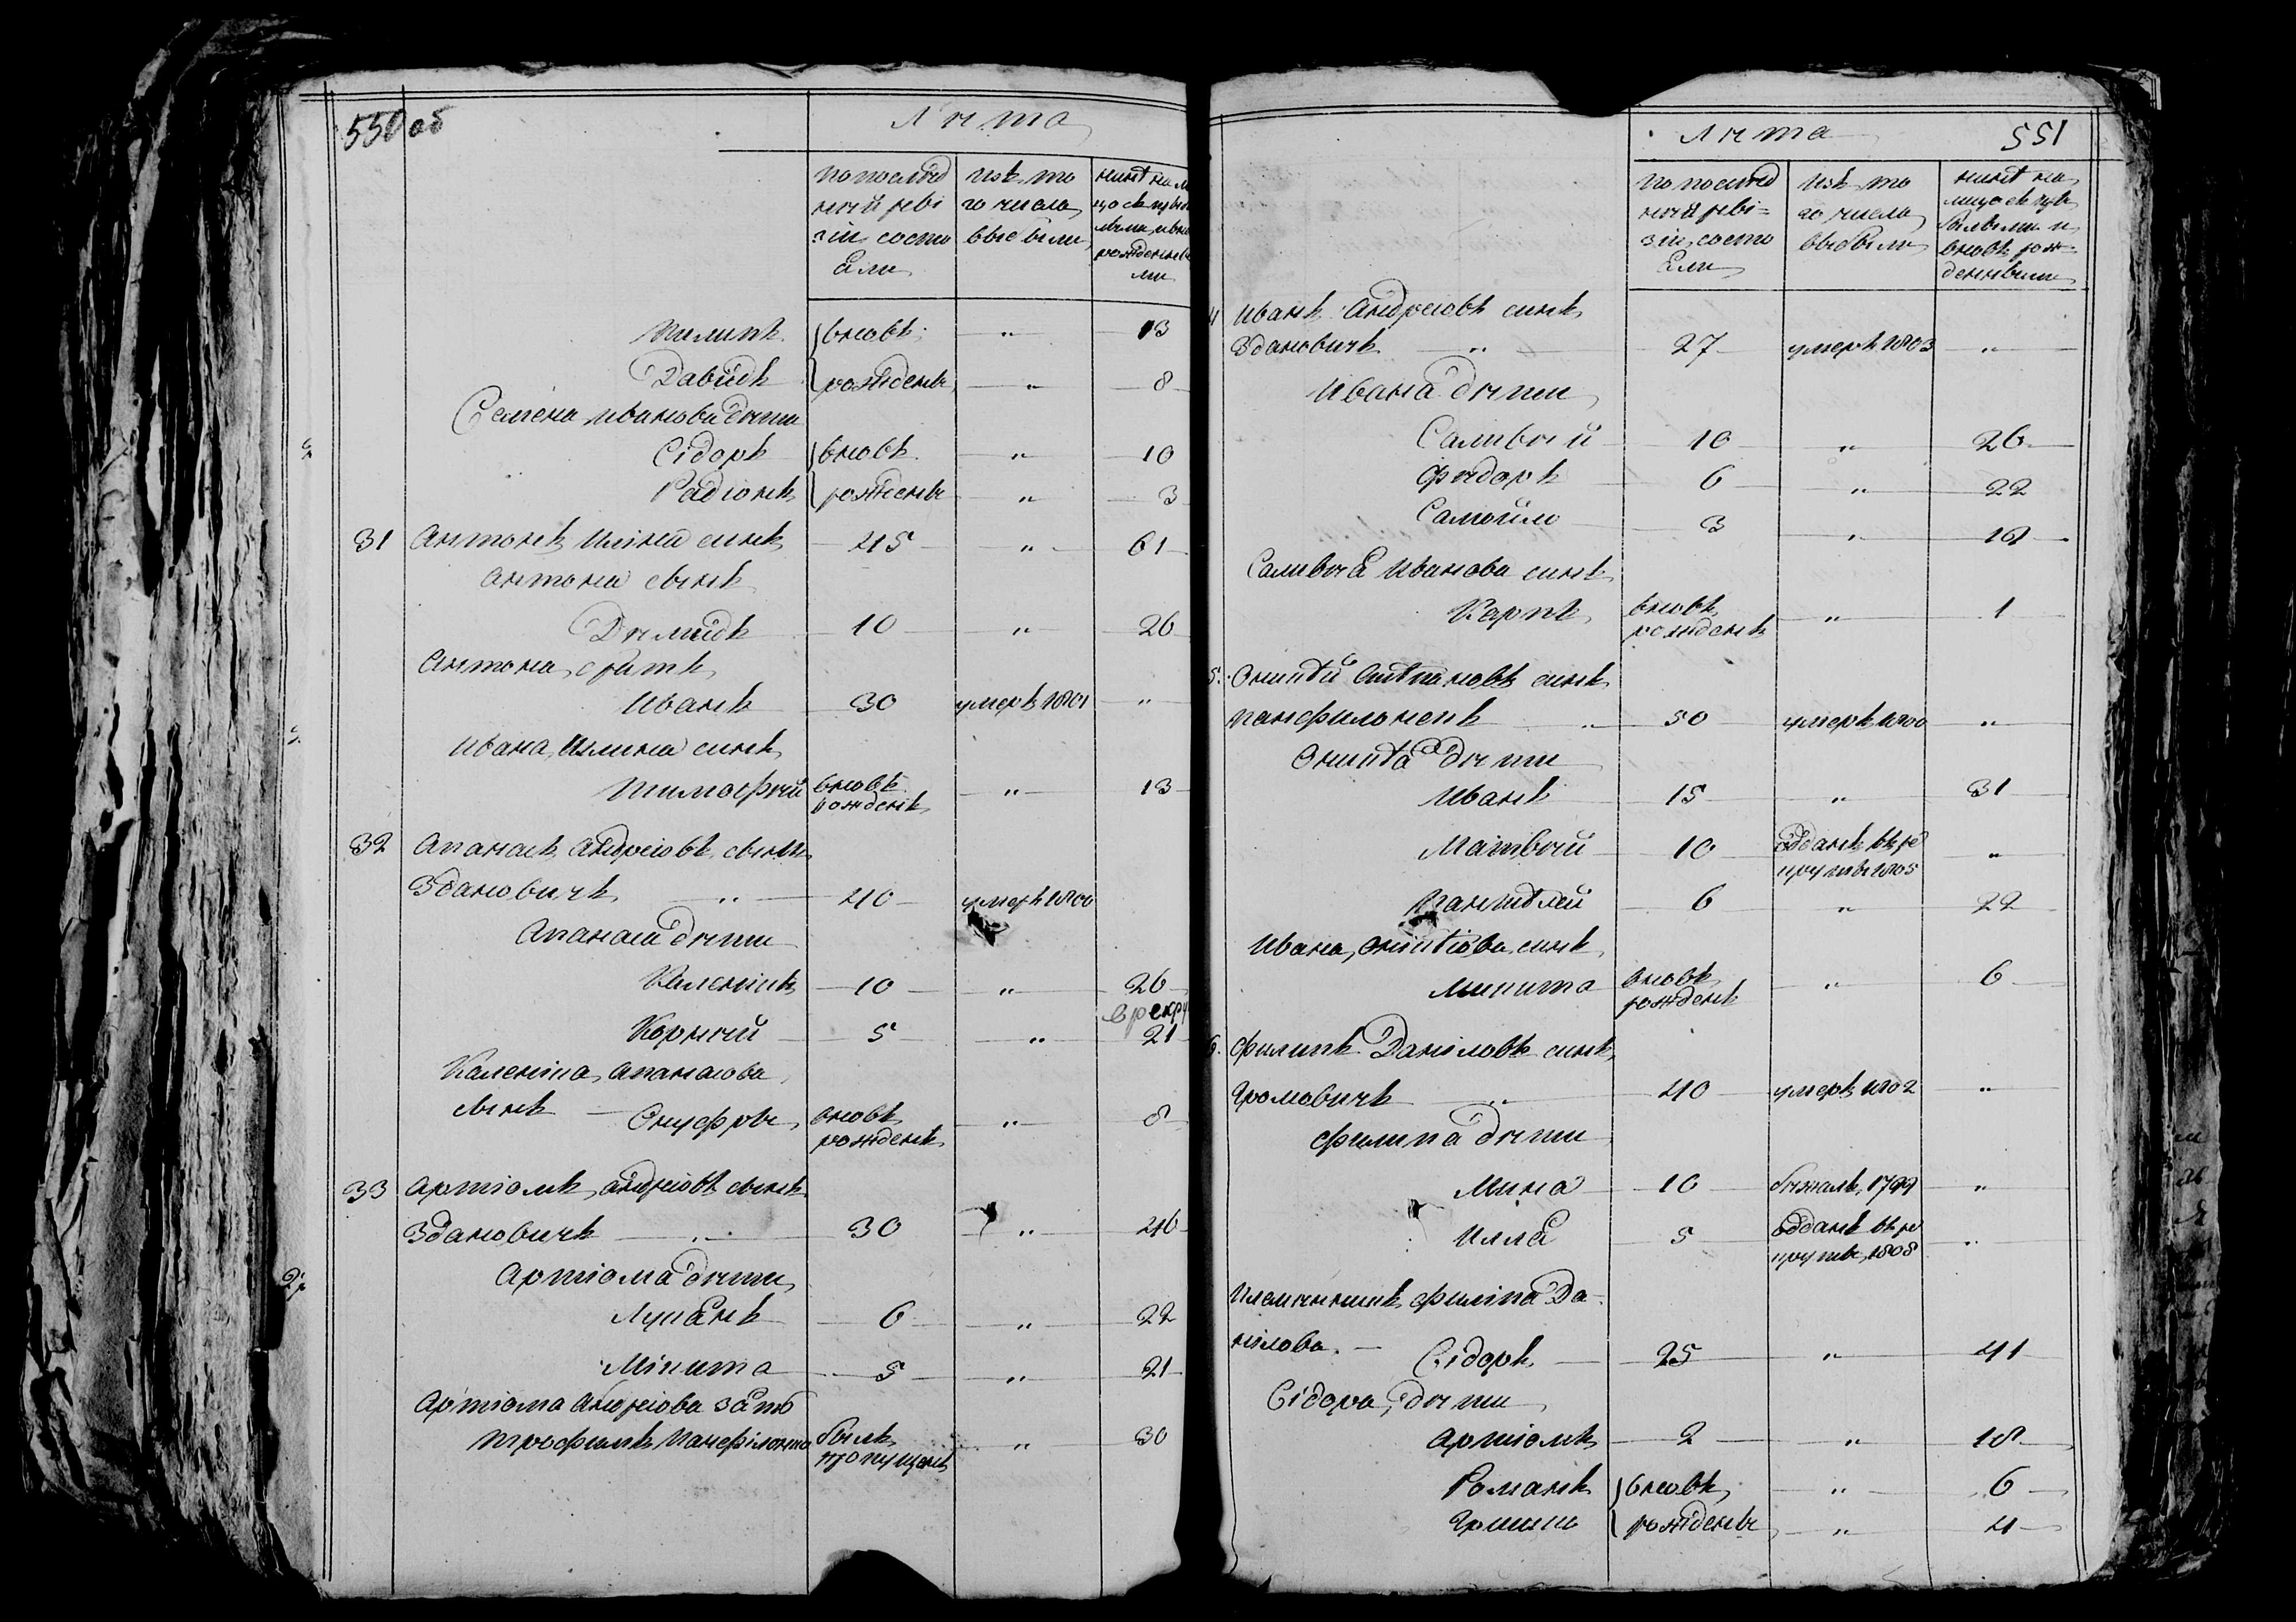 550 об
Лета
по послед ней реви зіи состо яли
изъ то го числа выбыли
ныне на ли цо съ прибы лыми и вно рожденны ми
Пилипъ } вновь " 13
Давидъ } рождены " 8
Семена Иванова дети
Сідоръ } вновь " 10
Радіонъ } рождены " 3
31 Антонъ Илінъ синъ 45 " 61
Антона сынъ
Демидъ 10 " 26
Антона братъ
Иванъ 30 умеръ 1801 "
Ивана Илина синъ
Тимофей вновь рожденъ " 13
32 Апанасъ Андреіовъ сынъ
Здановичъ " 40 умеръ 1800
Апанаса дети
Каленикъ 10 " 26
в рекр
Корней 5 " 21
Каленіка Апанасова
сынъ — Онуфры вновь рожденъ " 8
33 Артіомъ Андреіовъ сынъ
Здановичъ " 30 " 46
Артіома дети
Лукянъ 6 " 22
Мікита 5 " 21
Артіома Андреіова зять
Трофимъ Панфілонко былъ пропущенъ " 30
Лета 551
по послед ней реві= зіи состо яли
изъ то го числа выбыли
ныне на лицо съ при былыми и вновь рож= денными
4 Иванъ Андреіовъ синъ
Здановичъ " 27 умеръ 1803 "
Ивана дети
Саливей 10 " 26
Федоръ 6 " 22
Самойло 3 " 19
Саливея Иванова синъ
Карпъ вновь рожденъ " 1
5. Оникей Степановъ синъ
Панфилонокъ " 50 умеръ 1800 "
Оникея дети
Иванъ 15 " 31
Матвей 10 одданъ въ ре круты 1805 "
Пантелей 6 " 22
Ивана Оникіова синъ
Микита вновь рожденъ " 6
6. Филипъ Даніловъ синъ
Громовичъ " 40 умеръ 1802 "
Филипа дети
Мина 10 бежалъ 1799 "
Илля 5 одданъ въ ре круты 1808 "
Племенникъ Филіпа Да-
нілова. — Сідоръ 25 " 41
Сідора дети
Артіомъ 2 " 18
Романъ } вновь " 6
Гришко } рождены " 4